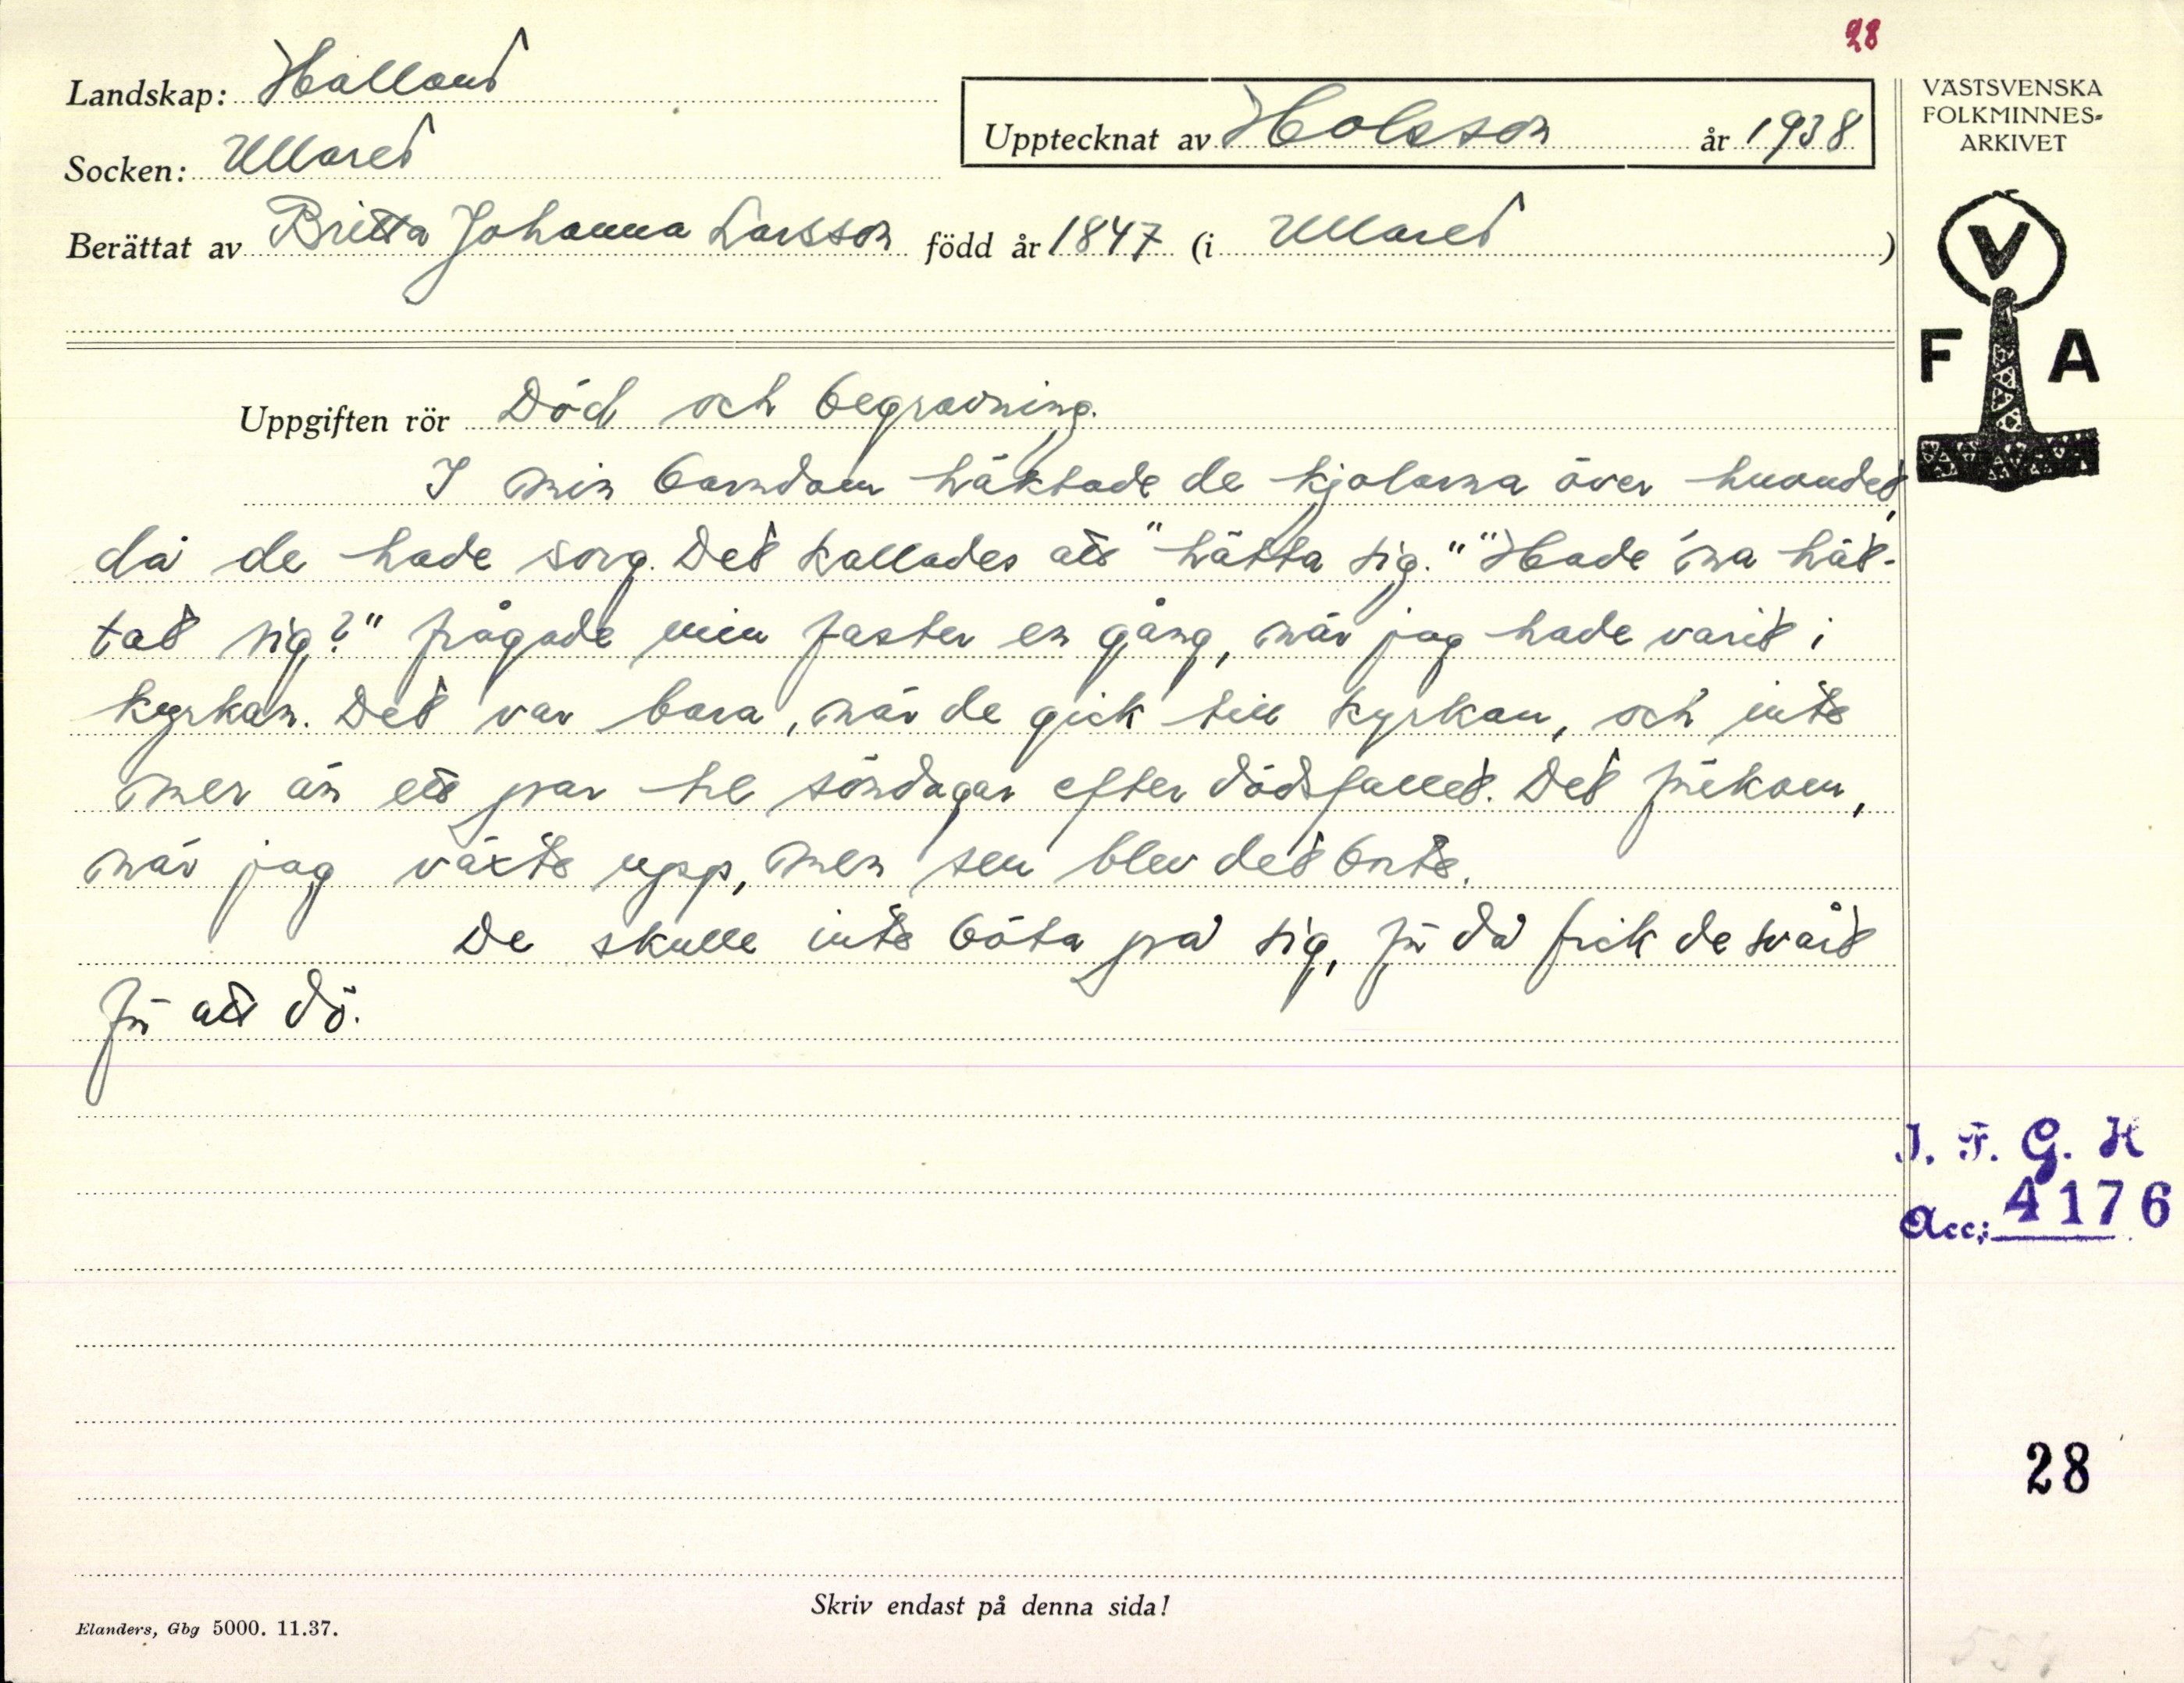 28
Landskap: Halland
Socken: Ullared
Upptecknat av Holsson år 1938
Berättat av Britta Johanna Larsson född år 1847 (i Ullared)
VÄSTSVENSKA
FOLKMINNES-
ARKIVET
V
F A
Uppgiften rör Död och begravning.
I min barndom häktade de kjolarna över huvudet,
då de hade sorg. Det kallades att "hätta sig." "Hade 'na hät-
tat sig?" frågade min faster en gång, när jag hade varit i
kyrkan. Det var bara, när de gick till kyrkan, och inte
mer än ett par tre söndagar efter dödsfallet. Det förekom,
när jag växte upp, men sen blev det borta.
De skulle inte böta på sig, för då fick de svårt
för att dö.
I. F. G. H
Acc: 4176
28
Skriv endast på denna sida!
Elanders, Gbg 5000. 11.37.